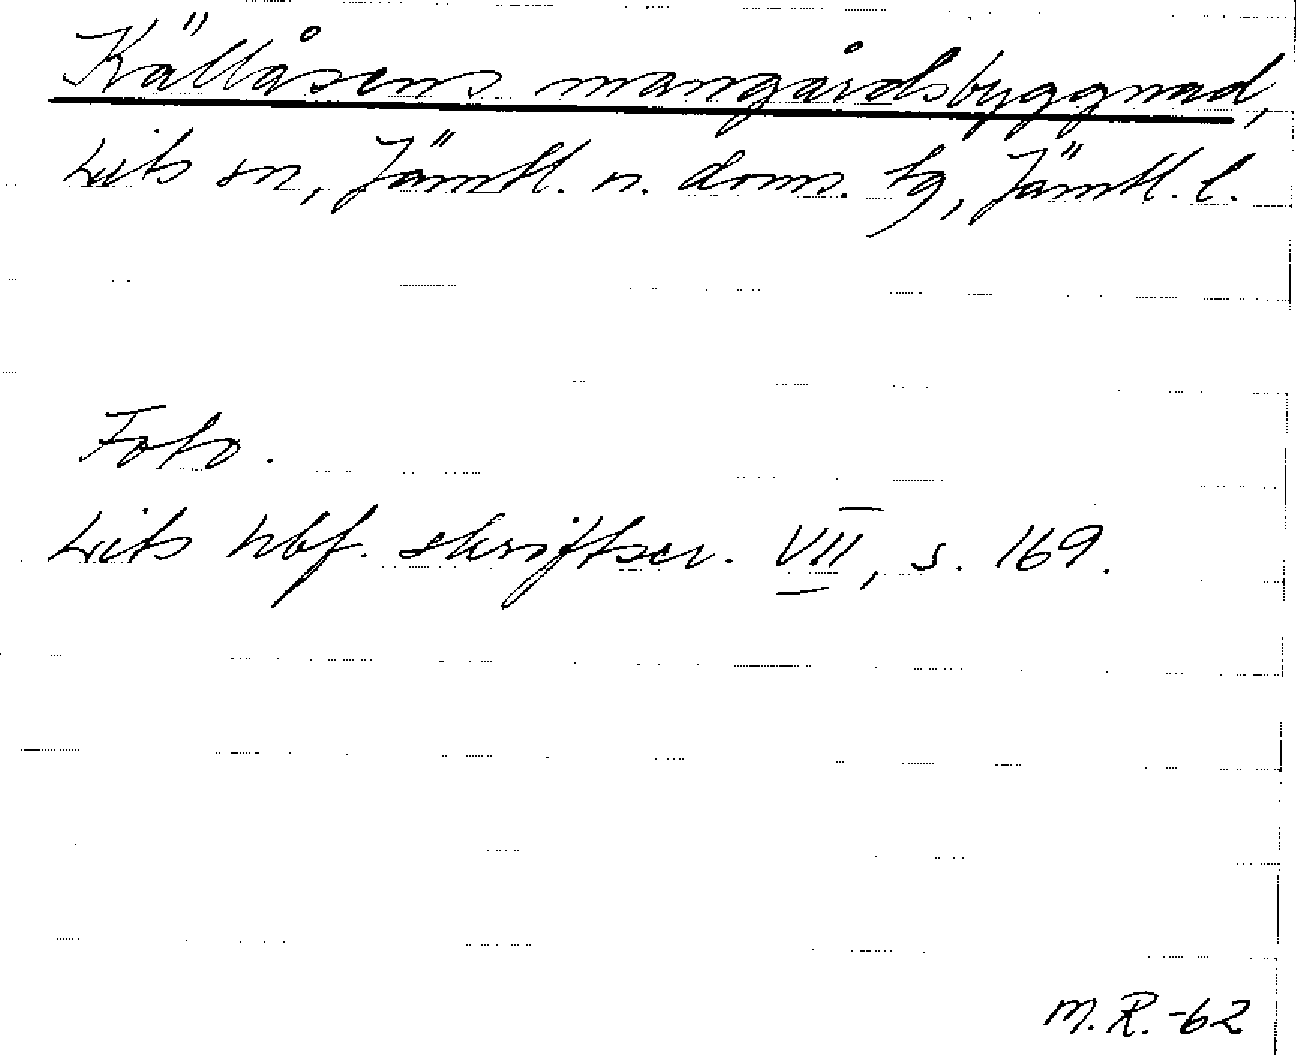 Källåsens mangårdsbyggnad,
Lits sn, Jämtl. n. doms. tg, Jämtl. l.
Foto.
Lits hbf. skriftser. VII, s. 169.
M.R.-62